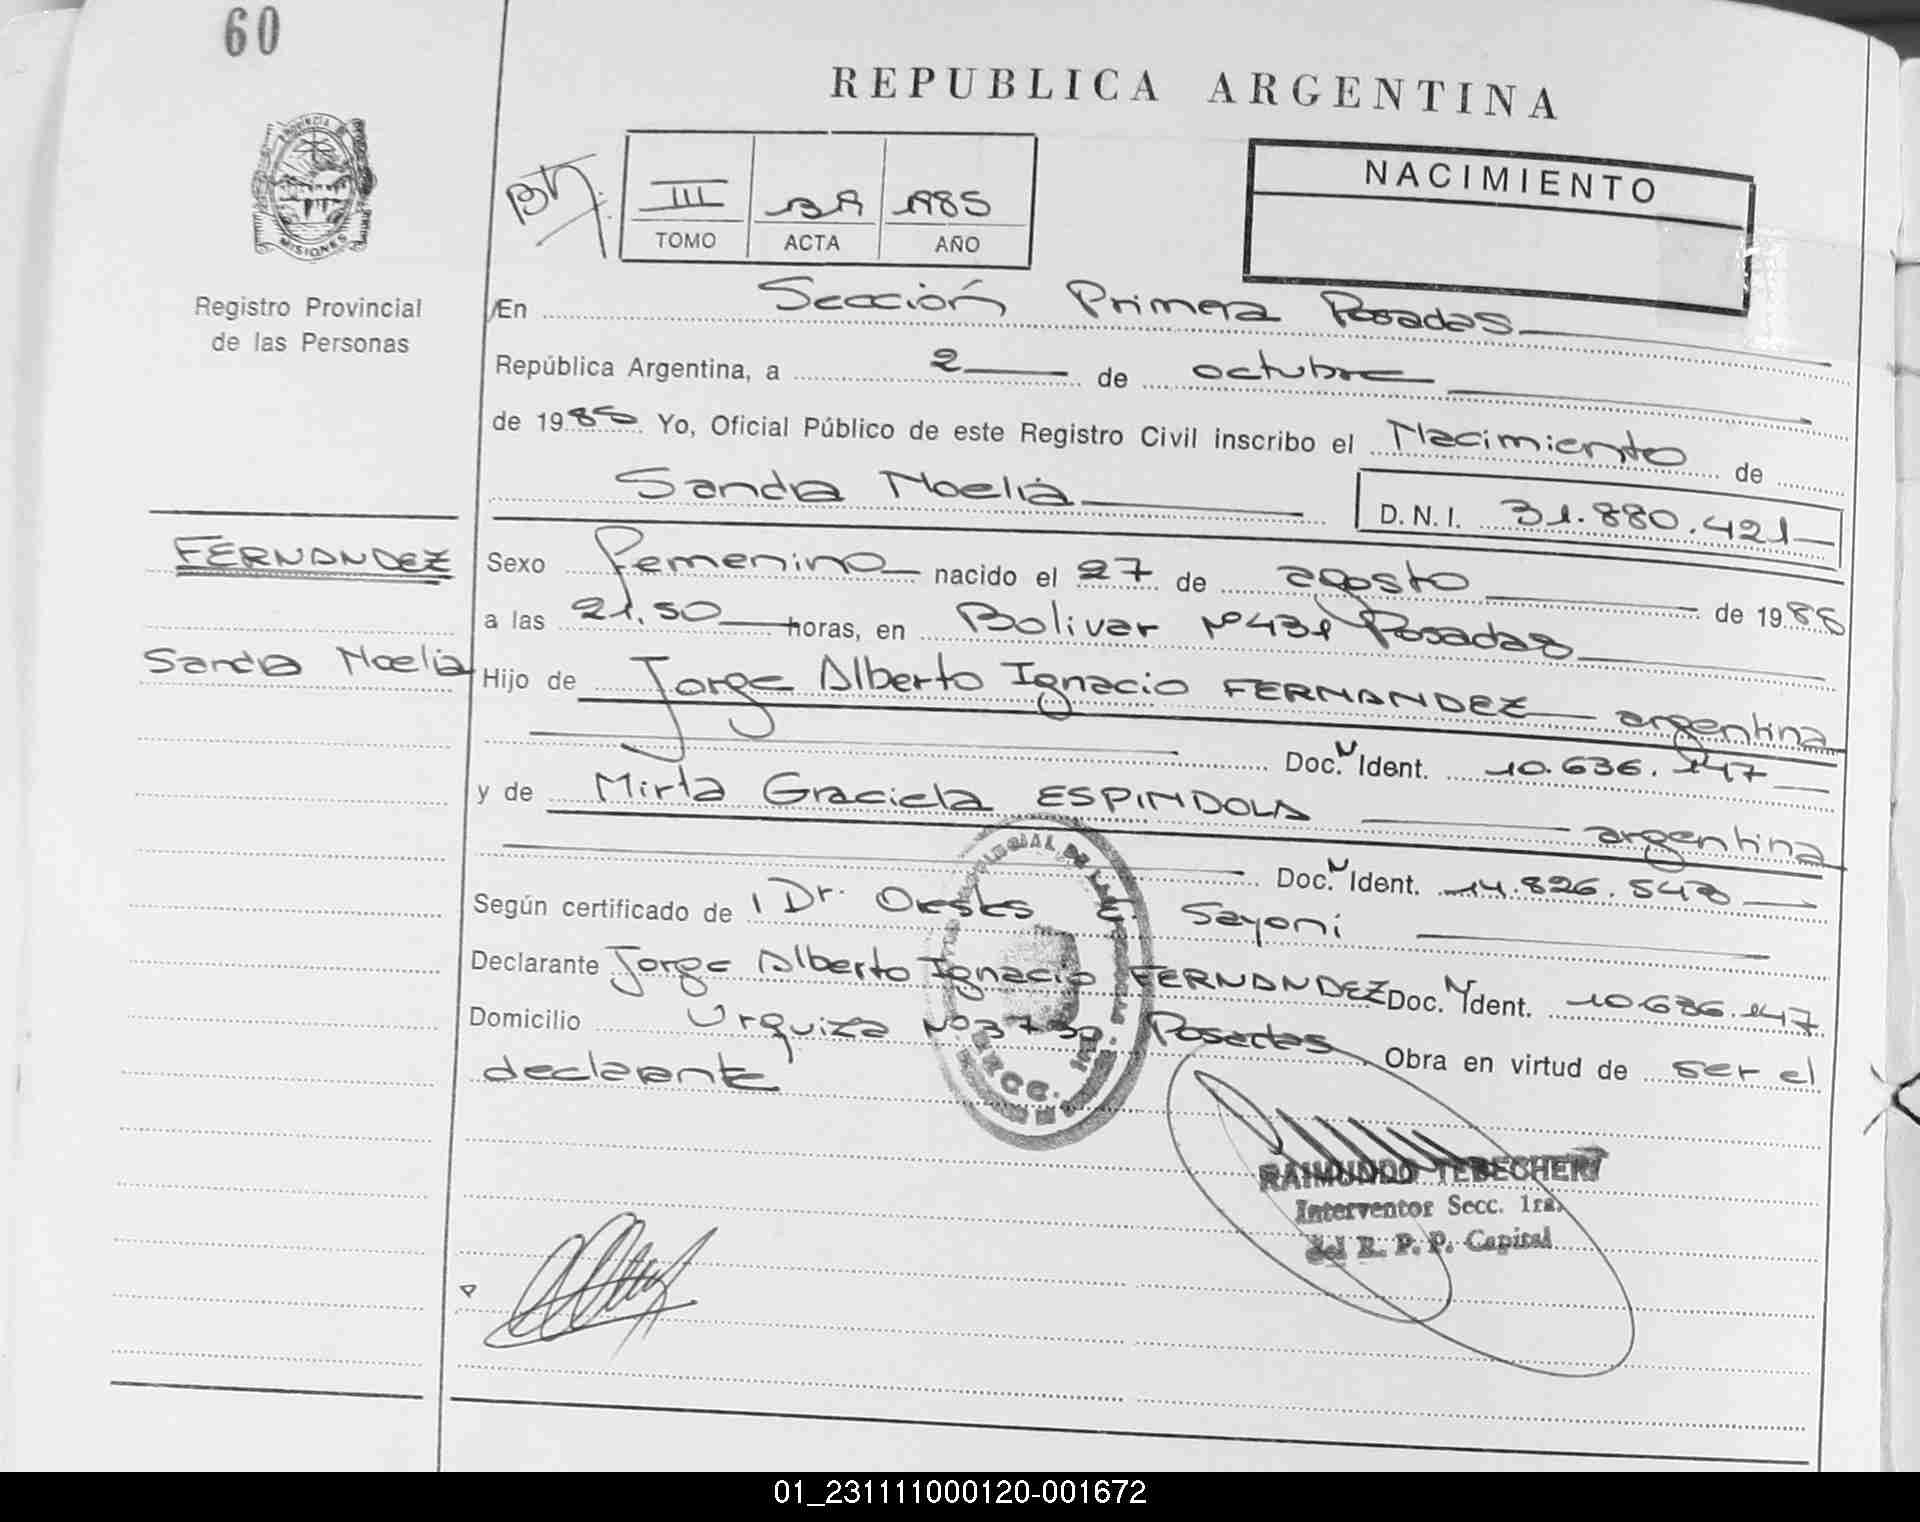 60
REPUBLICA ARGENTINA
PROVINCIA DE
MISIONES
III 1985
TOMO ACTA AÑO
NACIMIENTO
Registro Provincial
de las Personas
En Sección Primera Posadas
República Argentina, a 2 de octubre
de 1985 Yo, Oficial Público de este Registro Civil inscribo el Nacimiento de
Sandra Noelia D.N.I. 31.880.421
FERNANDEZ
Sexo femenino nacido el 27 de agosto de 1985
a las 21.50 horas, en Bolivar Nº431 Posadas
Sandra Noelia
Hijo de Jorge Alberto Ignacio FERNANDEZ argentina
Doc. N Ident. 10.636.147
y de Mirta Graciela ESPINDOLA argentina
Doc. N Ident. 14.826.548
Según certificado de Dr. Orestes Sayoni
Declarante Jorge Alberto Ignacio FERNANDEZ Doc. N Ident. 10.636.147
Domicilio Urquiza Nº3730 Posadas Obra en virtud de ser el
declarante
RAIMUNDO TEBECHERI
Interventor Secc. 1ra.
del R. P. P. Capital
01_231111000120-001672